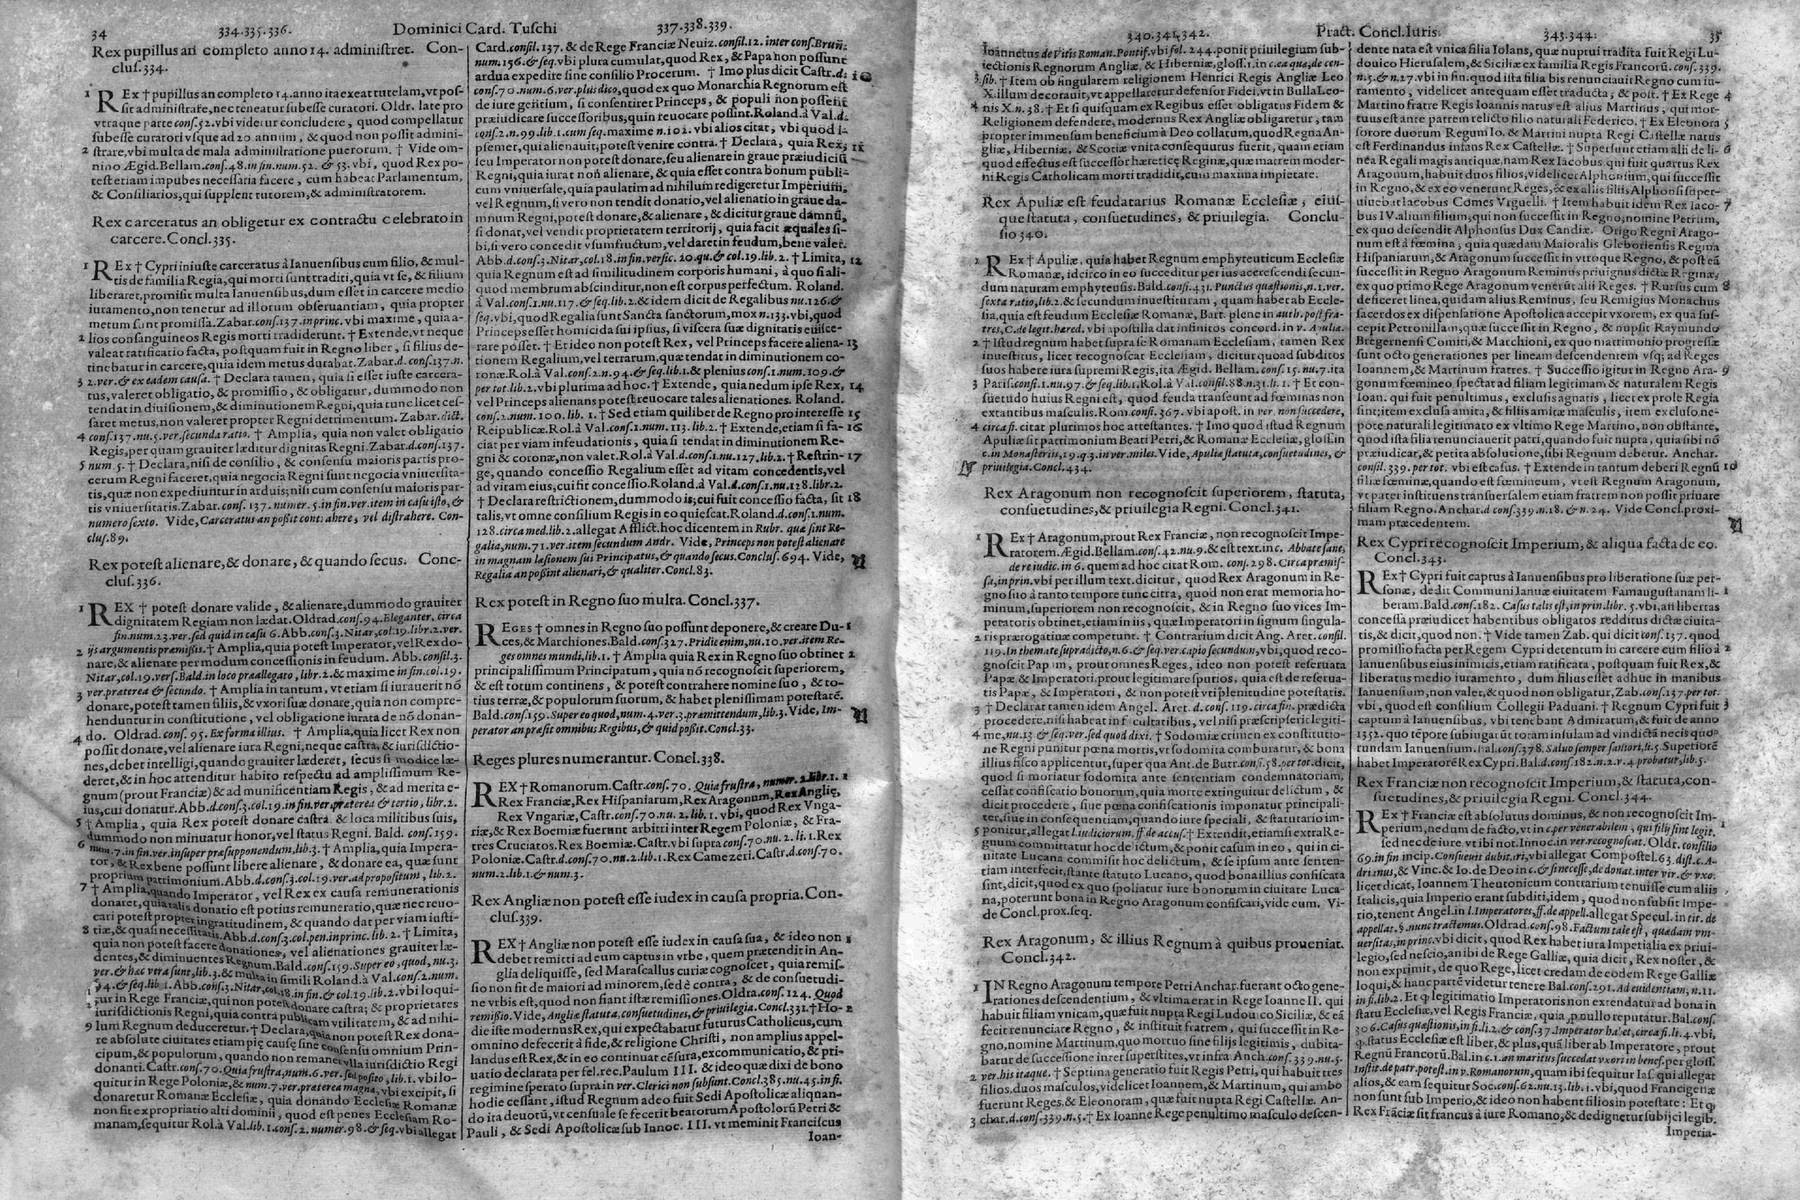 34
334.335.336.
Dominici Card. Tuschi
337.338.339.
Rex pupillus an completo anno 14. administret. Con-
cluſ.334.
1 REx † pupillus an completo 14. anno ita exeat tutelam, vt poſ-
ſit adminiſtraſe, nec teneatur ſubeſſe curatori. Oldr. late pro
vtraque parte conſ.52. vbi videtur concludere, quod compellatur
ſubeſſe curatori vſque ad 20 annum, & quod non poſſit admini-
2 ſtrare, vbi multa de mala adminiſtratione puerorum. † Vide om-
nino Ægid.Bellam.conſ.48.in fin.num.52. & 53. vbi, quod Rex po-
teſt etiam impubes neceſſaria facere, cum habeat Parlamentum,
& Conſiliarios, qui ſupplent tutorem, & adminiſtratorem.
Rex carceratus an obligetur ex contractu celebrato in
carcere. Concl.335.
1 REx † Cypri iniuſte carceratus à Ianuenſibus cum filio, & mul-
tis de familia Regia, qui morti ſunt traditi, quia vt ſe, & filium
liberaret, promiſit multa Ianuenſibus, dum eſſet in carcere medio
iuramento, non tenetur ad illorum obſeruantiam, quia propter
metum ſunt promiſſa. Zabar.conſ.137.in princ. vbi maxime, quia a-
2 lios conſanguineos Regis morti tradiderunt. † Extende, vt neque
valeat ratificatio facta, poſtquam fuit in Regno liber, ſi filius de-
tinebatur in carcere, quia idem metus durabat. Zabar.d.conſ.137.n.
3 2.ver.& ex eadem cauſa. † Declara tamen, quia ſi eſſet iuſte carcera-
tus, valeret obligatio, & promiſſio, & obligatur, dummodo non
tendat in diuiſionem, & diminutionem Regni, quia tunc licet ceſ-
ſaret metus, non valeret propter Regni detrimentum. Zabar. dict.
4 conſ.137.nu.5.ver.ſecunda ratio. † Amplia, quia non valet obligatio
Regis, per quam grauiter læditur dignitas Regni. Zabar.d.conſ.137.
5 num 5. † Declara, niſi de conſilio, & conſenſu maioris partis pro-
cerum Regni faceret, quia negocia Regni ſunt negocia vniuerſita-
tis, quæ non expediuntur in arduis, niſi cum conſenſu maioris par-
tis vniuerſitatis. Zabar.conſ. 137. numer.5.in fin.ver.item in caſu iſto, &
numero ſexto. Vide, Carceratus an poſſit contrahere, vel diſtrahere. Con-
cluſ.89.
Rex poteſt alienare, & donare, & quando ſecus. Conc-
cluſ.336.
1 REX † poteſt donare valide, & alienare, dummodo grauiter
dignitatem Regiam non lædat. Oldrad.conſ.94. Eleganter, circa
fin.num.23.ver.ſed quid in caſu 6. Abb.conſ.3. Nitar, col.19.libr.2.ver.
2 ijs argumentis præmiſſis. † Amplia, quia poteſt Imperator, vel Rex do-
nare, & alienare per modum conceſſionis in feudum. Abb. conſil.3.
Nitar, col.19.verſ. Bald.in loco præallegato, libr.2. & maxime in fin.col.19.
3 ver.præterea & ſecundo. † Amplia in tantum, vt etiam ſi iurauerit nō
donare, poteſt tamen filiis, & vxori ſuæ donare, quia non compre-
henduntur in conſtitutione, vel obligatione iurata de nō donan-
4 do. Oldrad. conſ. 95. Ex forma illius. † Amplia, quia licet Rex non
poſſit donare, vel alienare iura Regni, neque caſtra, & iuriſdictio-
nes, debet intelligi, quando grauiter læderet, ſecus ſi modice læ-
deret, & in hoc attenditur habito reſpectu ad ampliſſimum Re-
gnum (prout Franciæ) & ad munificentiam Regis, & ad merita e-
ius, cui donatur. Abb.d.conſ.3.col.19.in fin.ver.præterea & tertio, libr.2.
5 † Amplia, quia Rex poteſt donare caſtra & loca militibus ſuis,
dummodo non minuatur honor, vel ſtatus Regni. Bald. conſ.159.
6 num.7.in fin.ver.inſuper præſupponendum, lib.3. † Amplia, quia Impera-
tor, & Rex bene poſſunt libere alienare, & donare ea, quæ ſunt
proprium patrimonium. Abb.d.conſ.3.col.19.ver.ad propoſitum, lib.2.
7 † Amplia, quando Imperator, vel Rex ex cauſa remunerationis
donaret, quia talis donatio eſt potius remuneratio, quæ nec reuo-
cari poteſt propter ingratitudinem, & quando dat per viam iuſti-
8 tiæ, & quaſi neceſſitatis. Abb.d.conſ.3.col.pen.in princ.lib.2. † Limita,
quia non poteſt facere donationes, vel alienationes grauiter læ-
dentes, & diminuentes Regnum. Bald.conſ.159. Super eo, quod, nu.3.
ver.& hæc vera ſunt, lib.3. & multa in ſimili Roland.à Val.conſ.2.num.
94.& ſeq.lib.1. Abb.conſ.3. Nitar, col.18.in fin.& col.19.lib.2. vbi loqui-
tur in Rege Franciæ, qui non poteſt donare caſtra, & proprietates
iuriſdictionis Regni, quia contra publicam vtilitatem, & ad nihi-
9 lum Regnum deduceretur. † Declara, quia non poteſt Rex dona-
re abſolute ciuitates etiam piæ cauſæ ſine conſenſu omnium Prin-
cipum, & populorum, quando non remanet vlla iuriſdictio Regi
donanti. Caſtr.conſ.70. Quia fruſtra, num.6.ver.ſed poſito, lib.1. vbi lo-
quitur in Rege Poloniæ, & num.7.ver.præterea magna, vbi excipit, ſi
donaretur Romanæ Eccleſiæ, quia donando Eccleſiæ Romanæ
non fit ex proprietario alti dominii, quod eſt penes Eccleſiam Ro-
manam, ſequitur Rol.à Val.lib.1.conſ.2.numer.98.& ſeq.vbi allegat
Card.conſil.137. & de Rege Franciæ Neuiz.conſil.12. inter conſ.Brun:
num.156.& ſeq. vbi plura cumulat, quod Rex, & Papa non poſſunt
ardua expedire ſine conſilio Procerum. † Imo plus dicit Caſtr.d. 10
conſ.70.num.6.ver.plus dico, quod ex quo Monarchia Regnorum eſt
de iure gentium, ſi conſentiret Princeps, & populi non poſſent
præiudicare ſucceſſoribus, quin reuocare poſſint. Roland.à Val.d.
conſ.2.num.99.lib.1.cum ſeq. maxime n.102. vbi alios citat, vbi quod i-
pſemet, qui alienauit, poteſt venire contra. † Declara, quia Rex, 11
ſeu Imperator non poteſt donare, ſeu alienare in graue præiudiciū
Regni, quia iurat non alienare, & quia eſſet contra bonum publi-
cum vniuerſale, quia paulatim ad nihilum redigeretur Imperium,
vel Regnum, ſi vero non tendit donatio, vel alienatio in graue da-
mnum Regni, poteſt donare, & alienare, & dicitur graue damnū,
ſi donat, vel vendit proprietatem territorij, quia facit æquales ſi-
bi, ſi vero concedit vſumfructum, vel daret in feudum, bene valet.
Abb.d.conſ.3. Nitar, col.18.in fin.verſic. 20.qu.& col.19.lib.2. † Limita, 12
quia Regnum eſt ad ſimilitudinem corporis humani, à quo ſi ali-
quod membrum abſcinditur, non eſt corpus perfectum. Roland.
à Val.conſ.1.nu.117.& ſeq.lib.2. & idem dicit de Regalibus nu.126.&
ſeq. vbi, quod Regalia ſunt Sancta ſanctorum, mox n.133.vbi, quod
Princeps eſſet homicida ſui ipſius, ſi viſcera ſuæ dignitatis euiſce-
rare poſſet. † Et ideo non poteſt Rex, vel Princeps facere aliena- 13
tionem Regalium, vel terrarum, quæ tendat in diminutionem co-
ronæ. Rol.à Val.conſ.2.n.94.& ſeq.lib.1. & plenius conſ.1.num.109.&
per tot.lib.2. vbi plurima ad hoc. † Extende, quia nedum ipſe Rex, 14
vel Princeps alienans poteſt reuocare tales alienationes. Roland.
conſ.2.num.100.lib. 1. † Sed etiam quilibet de Regno pro intereſſe 15
Reipublicæ. Rol.à Val.conſ.1.num. 113.lib.2. † Extende, etiam ſi fa- 16
ciat per viam infeudationis, quia ſi tendat in diminutionem Re-
gni & coronæ, non valet. Rol.à Val.d.conſ.1.nu.127.lib.2. † Reſtrin- 17
ge, quando conceſſio Regalium eſſet ad vitam concedentis, vel
ad vitam eius, cui fit conceſſio. Roland.à Val.d.conſ.1.nu.128.lib.2.
† Declara reſtrictionem, dummodo is, cui fuit conceſſio facta, ſit 18
talis, vt omne conſilium Regis in eo quieſcat. Roland.d.conſ.1.num.
128.circa med.lib.2. allegat Afflict.hoc dicentem in Rubr. quæ ſint Re-
galia, num.71.ver.item ſecundum Andr. Vide, Princeps non poteſt alienare
in magnam læſionem ſui Principatus, & quando ſecus. Concluſ. 694. Vide,
Regalia an poſſint alienari, & qualiter. Concl.83.
Rex poteſt in Regno ſuo multa. Concl.337.
REGES † omnes in Regno ſuo poſſunt deponere, & creare Du- 1
ces, & Marchiones. Bald.conſ.327. Pridie enim, nu.10.ver.item Re-
ges omnes mundi, lib.1. † Amplia quia Rex in Regno ſuo obtinet 2
principaliſſimum Principatum, quia nō recognoſcit ſuperiorem,
& eſt totum continens, & poteſt contrahere nomine ſuo, & to-
tius terræ, & populorum ſuorum, & habet pleniſſimam poteſtatē.
Bald.conſ.159. Super eo quod, num.4.ver.3.præmittendum, lib.3. Vide, Im-
perator an præſit omnibus Regibus, & quid poſſit. Concl.33.
Reges plures numerantur. Concl.338.
REX † Romanorum. Caſtr.conſ.70. Quia fruſtra, numer.2.libr.1. 1
Rex Franciæ, Rex Hiſpaniarum, Rex Aragonum, Rex Angliæ,
Rex Vngariæ, Caſtr.conſ.70.nu.2. lib.1. vbi, quod Rex Vnga-
riæ, & Rex Boemiæ fuerunt arbitri inter Regem Poloniæ, & Fra-
tres Cruciatos. Rex Boemiæ. Caſtr.vbi ſupra conſ.70.nu.2. li.1. Rex
Poloniæ. Caſtr.d.conſ.70.nu.2.lib.1. Rex Camezeri. Caſtr.d.conſ.70.
num.2.lib.1.& num.3.
Rex Angliæ non poteſt eſſe iudex in cauſa propria. Con-
cluſ.339.
REX † Angliæ non poteſt eſſe iudex in cauſa ſua, & ideo non 1
debet remitti ad eum captus in vrbe, quem prætendit in An-
glia deliquiſſe, ſed Marascallus curiæ cognoſcet, quia remiſ-
ſio non fit de maiori ad minorem, ſed è contra, & de conſuetudi-
ne vrbis eſt, quod non fiant iſtæ remiſſiones. Oldra.conſ.124. Quod
remiſſio. Vide, Angliæ ſtatuta, conſuetudines, & priuilegia. Concl.331. † Ho- 2
die iſte modernus Rex, qui expectabatur futurus Catholicus, cum
omnino defecerit à fide, & religione Chriſti, non amplius appel-
landus eſt Rex, & in eo continuat cēſura, excommunicatio, & pri-
uatio declarata per fel.rec.Paulum III. & ideo quæ dixi de bono
regimine ſperato ſupra in ver. Clerici non ſubſunt. Concl.385.nu.45.in fi.
hodie ceſſant, iſtud Regnum adeo fuit Sedi Apoſtolicæ aliquan-
do ita deuotū, vt cenſuale ſe fecerit beatorum Apoſtolorū Petri &
Pauli, & Sedi Apoſtolicæ ſub Innoc. III. vt meminit Franciſcus
Ioan-
340.341.342.
Pract. Concl. Iuris.
343.344.
35
Ioannettus de Vitis Roman.Pontif.vbi fol.244. ponit priuilegium ſub-
iectionis Regnorum Angliæ, & Hiberniæ, gloſſ.1.in c.ea quæ, de cen-
3 ſib. † Item ob ſingularem religionem Henrici Regis Angliæ Leo
X. illum decorauit, vt appellaretur defenſor Fidei, vt in Bulla Leo-
4 nis X.n.38. † Et ſi quiſquam ex Regibus eſſet obligatus Fidem &
Religionem defendere, modernus Rex Angliæ obligaretur, tam
propter immenſum beneficium à Deo collatum, quod Regna An-
gliæ, Hiberniæ, & Scotiæ vnita conſequutus fuerit, quam etiam
quod effectus eſt ſucceſſor hæreticæ Reginæ, quæ matrem moder-
ni Regis Catholicam morti tradidit, cum maxima impietate.
Rex Apuliæ eſt feudatarius Romanæ Eccleſiæ, eiuſ-
que ſtatuta, conſuetudines, & priuilegia. Conclu-
ſio 340.
1 REx † Apuliæ, quia habet Regnum emphyteuticum Eccleſiæ
Romanæ, idcirco in eo ſucceditur per ius accreſcendi ſecun-
dum naturam emphyteuſis. Bald.conſ.431. Punctus quæſtionis, n.1.ver.
ſexta ratio, lib.2. & ſecundum inueſtituram, quam habet ab Eccle-
ſia, quia eſt feudum Eccleſiæ Romanæ, Bart. plene in auth. poſt fra-
tres, C. de legit.hæred. vbi apoſtilla dat infinitos concord.in v. Apulia.
2 † Iſtud regnum habet ſupra ſe Romanam Eccleſiam, tamen Rex
inueſtitus, licet recognoſcat Eccleſiam, dicitur quoad ſubditos
ſuos habere iura ſupremi Regis, ita Ægid. Bellam. conſ. 15. nu.7. ita
3 Pariſ.conſ.1.nu.97.& ſeq.lib.1. Rol.à Val.conſil.88.n.31.li.1. † Et con-
ſuetudo huius Regni eſt, quod feuda tranſeunt ad fœminas non
extantibus maſculis. Rom.conſ.367. vbi apoſt. in ver. non ſuccedere,
4 circa fi. citat plurimos hoc atteſtantes. † Imo quod iſtud Regnum
Apuliæ ſit patrimonium Beati Petri, & Romanæ Eccleſiæ, gloſſ.in
c. in Monaſteriis, 19.q.3.in ver.miles. Vide, Apuliæ ſtatuta, conſuetudines, &
priuilegia. Concl.434.
Rex Aragonum non recognoſcit ſuperiorem, ſtatuta,
conſuetudines, & priuilegia Regni. Concl.341.
1 REx † Aragonum, prout Rex Franciæ, non recognoſcit Impe-
ratorem. Ægid.Bellam.conſ.42.nu.9. & eſt text.inc. Abbate ſane,
de re iudic.in 6. quem ad hoc citat Rom. conſ.298. Circa præmiſ-
ſa, in prin. vbi per illum text. dicitur, quod Rex Aragonum in Re-
gno ſuo à tanto tempore tunc citra, quod non erat memoria ho-
minum, ſuperiorem non recognoſcit, & in Regno ſuo vices Im-
peratoris obtinet, etiam in iis, quæ Imperatori in ſignum ſingula-
2 ris prærogatiuæ competunt. † Contrarium dicit Ang. Aret.conſil.
119. In themate ſupradicto, n.6.& ſeq.ver.capio ſecundum, vbi, quod reco-
gnoſcit Papam, prout omnes Reges, ideo non poteſt reſeruata
Papæ & Imperatori, prout legitimare ſpurios, quia eſt de reſerua-
tis Papæ, & Imperatori, & non poteſt vti plenitudine poteſtatis.
3 † Declarat tamen idem Angel. Aret. d. conſ. 119. circa fin. prædicta
procedere, niſi habeat in facultatibus, vel niſi præſcripſerit legiti-
4 me, nu.13 & ſeq.ver.ſed quod dixi. † Sodomiæ crimen ex conſtitutio-
ne Regni punitur pœna mortis, vt ſodomita comburatur, & bona
illius fiſco applicentur, ſuper qua Ant. de Butr.conſ.58.per tot. dicit,
quod ſi moriatur ſodomita ante ſententiam condemnatoriam,
ceſſat confiſcatio bonorum, quia morte extinguitur delictum, &
dicit procedere, ſiue pœna confiſcationis imponatur principali-
ter, ſiue in conſequentiam, quando iure ſpeciali, & ſtatutario im-
5 ponitur, allegat l.iudiciorum.ff.de accuſ. † Extendit, etiamſi extra Re-
gnum committatur hoc delictum, & ponit caſum in eo, qui in ci-
uitate Lucana commiſit hoc delictum, & ſe ipſum ante ſenten-
tiam interfecit, ſtante ſtatuto Lucano, quod bona illius confiſcata
ſint, dicit, quod ex quo ſpoliatur iure bonorum in ciuitate Luca-
na, poterunt bona in Regno Aragonum confiſcari, vide eum. Vi-
de Concl.prox.ſeq.
Rex Aragonum, & illius Regnum à quibus proueniat.
Concl.342.
1 IN Regno Aragonum tempore Petri Anchar. fuerunt octo gene-
rationes deſcendentium, & vltima erat in Rege Ioanne II. qui
habuit filiam vnicam, quæ fuit nupta Regi Ludouico Siciliæ, & eā
fecit renunciare Regno, & inſtituit fratrem, qui ſucceſſit in Re-
gno, nomine Martinum, quo mortuo ſine filijs legitimis, dubita-
batur de ſucceſſione inter ſuperſtites, vt infra Anch.conſ.339.nu.5.
2 ver.his itaque. † Septima generatio fuit Regis Petri, qui habuit tres
filios, duos maſculos, videlicet Ioannem, & Martinum, qui ambo
fuerunt Reges, & Eleonoram, quæ fuit nupta Regi Caſtellæ. An-
3 char.d.conſ.339.n.5. † Ex Ioanne Rege penultimo maſculo deſcen-
dente nata eſt vnica filia Iolans, quæ nuptui tradita fuit Regi Lu-
douico Hieruſalem, & Siciliæ ex familia Regis Francorū.conſ.339.
n.5.& n.27. vbi in fin. quod iſta filia bis renunciauit Regno cum iu-
ramento, videlicet antequam eſſet traducta, & poſt. † Ex Rege 4
Martino fratre Regis Ioannis natus eſt alius Martinus, qui mor-
tuus eſt ante patrem relicto filio naturali Federico. † Ex Eleonora 5
ſorore duorum Regum Io. & Martini nupta Regi Caſtellæ natus
eſt Ferdinandus infans Rex Caſtellæ. † Superſunt etiam alii de li- 6
nea Regali magis antiquæ, nam Rex Iacobus, qui fuit quartus Rex
Aragonum, habuit duos filios, videlicet Alphonſum, qui ſucceſſit
in Regno, & ex eo venerunt Reges, & ex aliis filiis Alphonſi ſuper-
uiuebat Iacobus Comes Vrguelli. † Item habuit idem Rex Iaco- 7
bus IV. alium filium, qui non ſucceſſit in Regno, nomine Petrum,
ex quo deſcendit Alphonſus Dux Candiæ. Origo Regni Arago-
num eſt à fœmina, quia quædam Maioralis Gleborienſis Regina
Hiſpaniarum, & Aragonum ſucceſſit in vtroque Regno, & poſt eā
ſucceſſit in Regno Aragonum Reminus priuignus dictæ Reginæ,
ex quo primo Rege Aragonum venerūt alii Reges. † Rurſus cum 8
deficeret linea, quidam alius Reminus, ſeu Remigius Monachus
ſacerdos ex diſpenſatione Apoſtolica accepit vxorem, ex qua ſuſ-
cepit Petronillam, quæ ſucceſſit in Regno, & nupſit Raymundo
Bregernenſi Comiti, & Marchioni, ex quo matrimonio progreſſæ
ſunt octo generationes per lineam deſcendentem vſq; ad Reges
Ioannem, & Martinum fratres. † Succeſſio igitur in Regno Ara- 9
gonum fœmineo ſpectat ad filiam legitimam & naturalem Regis
Ioan. qui fuit penultimus, excluſis agnatis, licet ex prole Regia
ſint; item excluſa amita, & filiis amitæ maſculis, item excluſo ne-
pote naturali legitimato ex vltimo Rege Martino, non obſtante,
quod iſta filia renunciauerit patri, quando fuit nupta, quia ſibi nō
præiudicat, & petita abſolutione, ſibi Regnum debetur. Anchar.
conſil.339.per tot. vbi eſt caſus. † Extende in tantum deberi Regnū 10
filiæ fœminæ, quando eſt fœmineum, vt eſt Regnum Aragonum,
vt pater inſtituens tranſuerſalem etiam fratrem non poſſit priuare
filiam Regno. Anchar.d.conſ.339.n.18. & n.24. Vide Concl.proxi-
mam præcedentem.
Rex Cypri recognoſcit Imperium, & aliqua facta de eo.
Concl.343.
REx † Cypri fuit captus à Ianuenſibus pro liberatione ſuæ per-
ſonæ, dedit Communi Ianuæ ciuitatem Famauguſtanam li- 1
beram. Bald.conſ.182. Caſus talis eſt, in prin.libr. 5. vbi, an libertas
conceſſa præiudicet habentibus obligatos redditus dictæ ciuita-
tis, & dicit, quod non. † Vide tamen Zab. qui dicit conſ.137. quod
promiſſio facta per Regem Cypri detentum in carcere cum filio à 2
Ianuenſibus eius inimicis, etiam ratificata, poſtquam fuit Rex, &
liberatus medio iuramento, dum filius eſſet adhuc in manibus
Ianuenſium, non valet, & quod non obligatur, Zab.conſ.137.per tot.
vbi, quod eſt conſilium Collegii Paduani. † Regnum Cypri fuit 3
captum à Ianuenſibus, vbi tenebant Admiratum, & fuit de anno
1352. quo tēpore ſubiugarūt totam inſulam ad vindictā necis quo-
rundam Ianuenſium. Bal.conſ.378. Saluo ſemper ſaniori, li.5. Superiorē
habet Imperatorē Rex Cypri. Bald.d.conſ.182.n.2.v.4 probatur, lib.5.
Rex Franciæ non recognoſcit Imperium, & ſtatuta, con-
ſuetudines, & priuilegia Regni. Concl.344.
REx † Franciæ eſt abſolutus dominus, & non recognoſcit Im-
perium, nedum de facto, vt in c.per venerabilem, qui filij ſint legit. 1
ſed nec de iure, vt ibi not. Innoc.in ver.recognoſcat. Oldr. conſilio
69.in fin incip. Conſueuit dubitari, vbi allegat Compoſtel.63.diſt.c.A-
drianus, & Vinc. & Io. de Deo in c.& ſi neceſſe, de donat.inter vir.& vxo.
licet dicat, Ioannem Theutonicum contrarium tenuiſſe cum aliis
Italicis, quia Imperio erant ſubditi, idem, quod non ſubſit Impe-
rio, tenent Angel.in l.Imperatores, ff.de appell. allegat Specul.in tit. de
appellat.§.nunc tractemus. Oldrad.conſ.98. Factum tale eſt, quædam vni-
uerſitas, in princ. vbi dicit, quod Rex habet iura Imperialia ex priui-
legio, ſed neſcio, an ibi de Rege Galliæ, quia dicit, Rex noſter, &
non exprimit, de quo Rege, licet credam de eodem Rege Galliæ
loqui, & hanc partē videtur tenere Bal.conſ.291. Ad euidentiam, n.11.
in fi.lib.2. Et q; legitimatio Imperatoris non extendatur ad bona in
ſtatu Eccleſiæ, vel Regis Franciæ, quia p nullo reputatur. Bal.conſ.
306. Caſus quæſtionis, in fi.li.2.& conſ.37. Imperator habet, circa fi.li.4. vbi,
q; ſtatus Eccleſiæ eſt liber, & plus, quā liber ab Imperatore, prout
Regnū Francorū. Bal.in c.1.an maritus ſuccedat vxori in benef. per gloſſ.
Inſtit.de patr.poteſt.in v.Romanorum, quam ibi ſequitur Iaſ. qui allegat
alios, & eam ſequitur Soc.conſ.62.nu.13.lib.1. vbi, quod Francigenæ
non ſunt ſub Imperio, & ideo non habent filios in poteſtate: Et q;
Rex Frāciæ ſit francus à iure Romano, & dedignetur ſubijci legib.
Imperia-